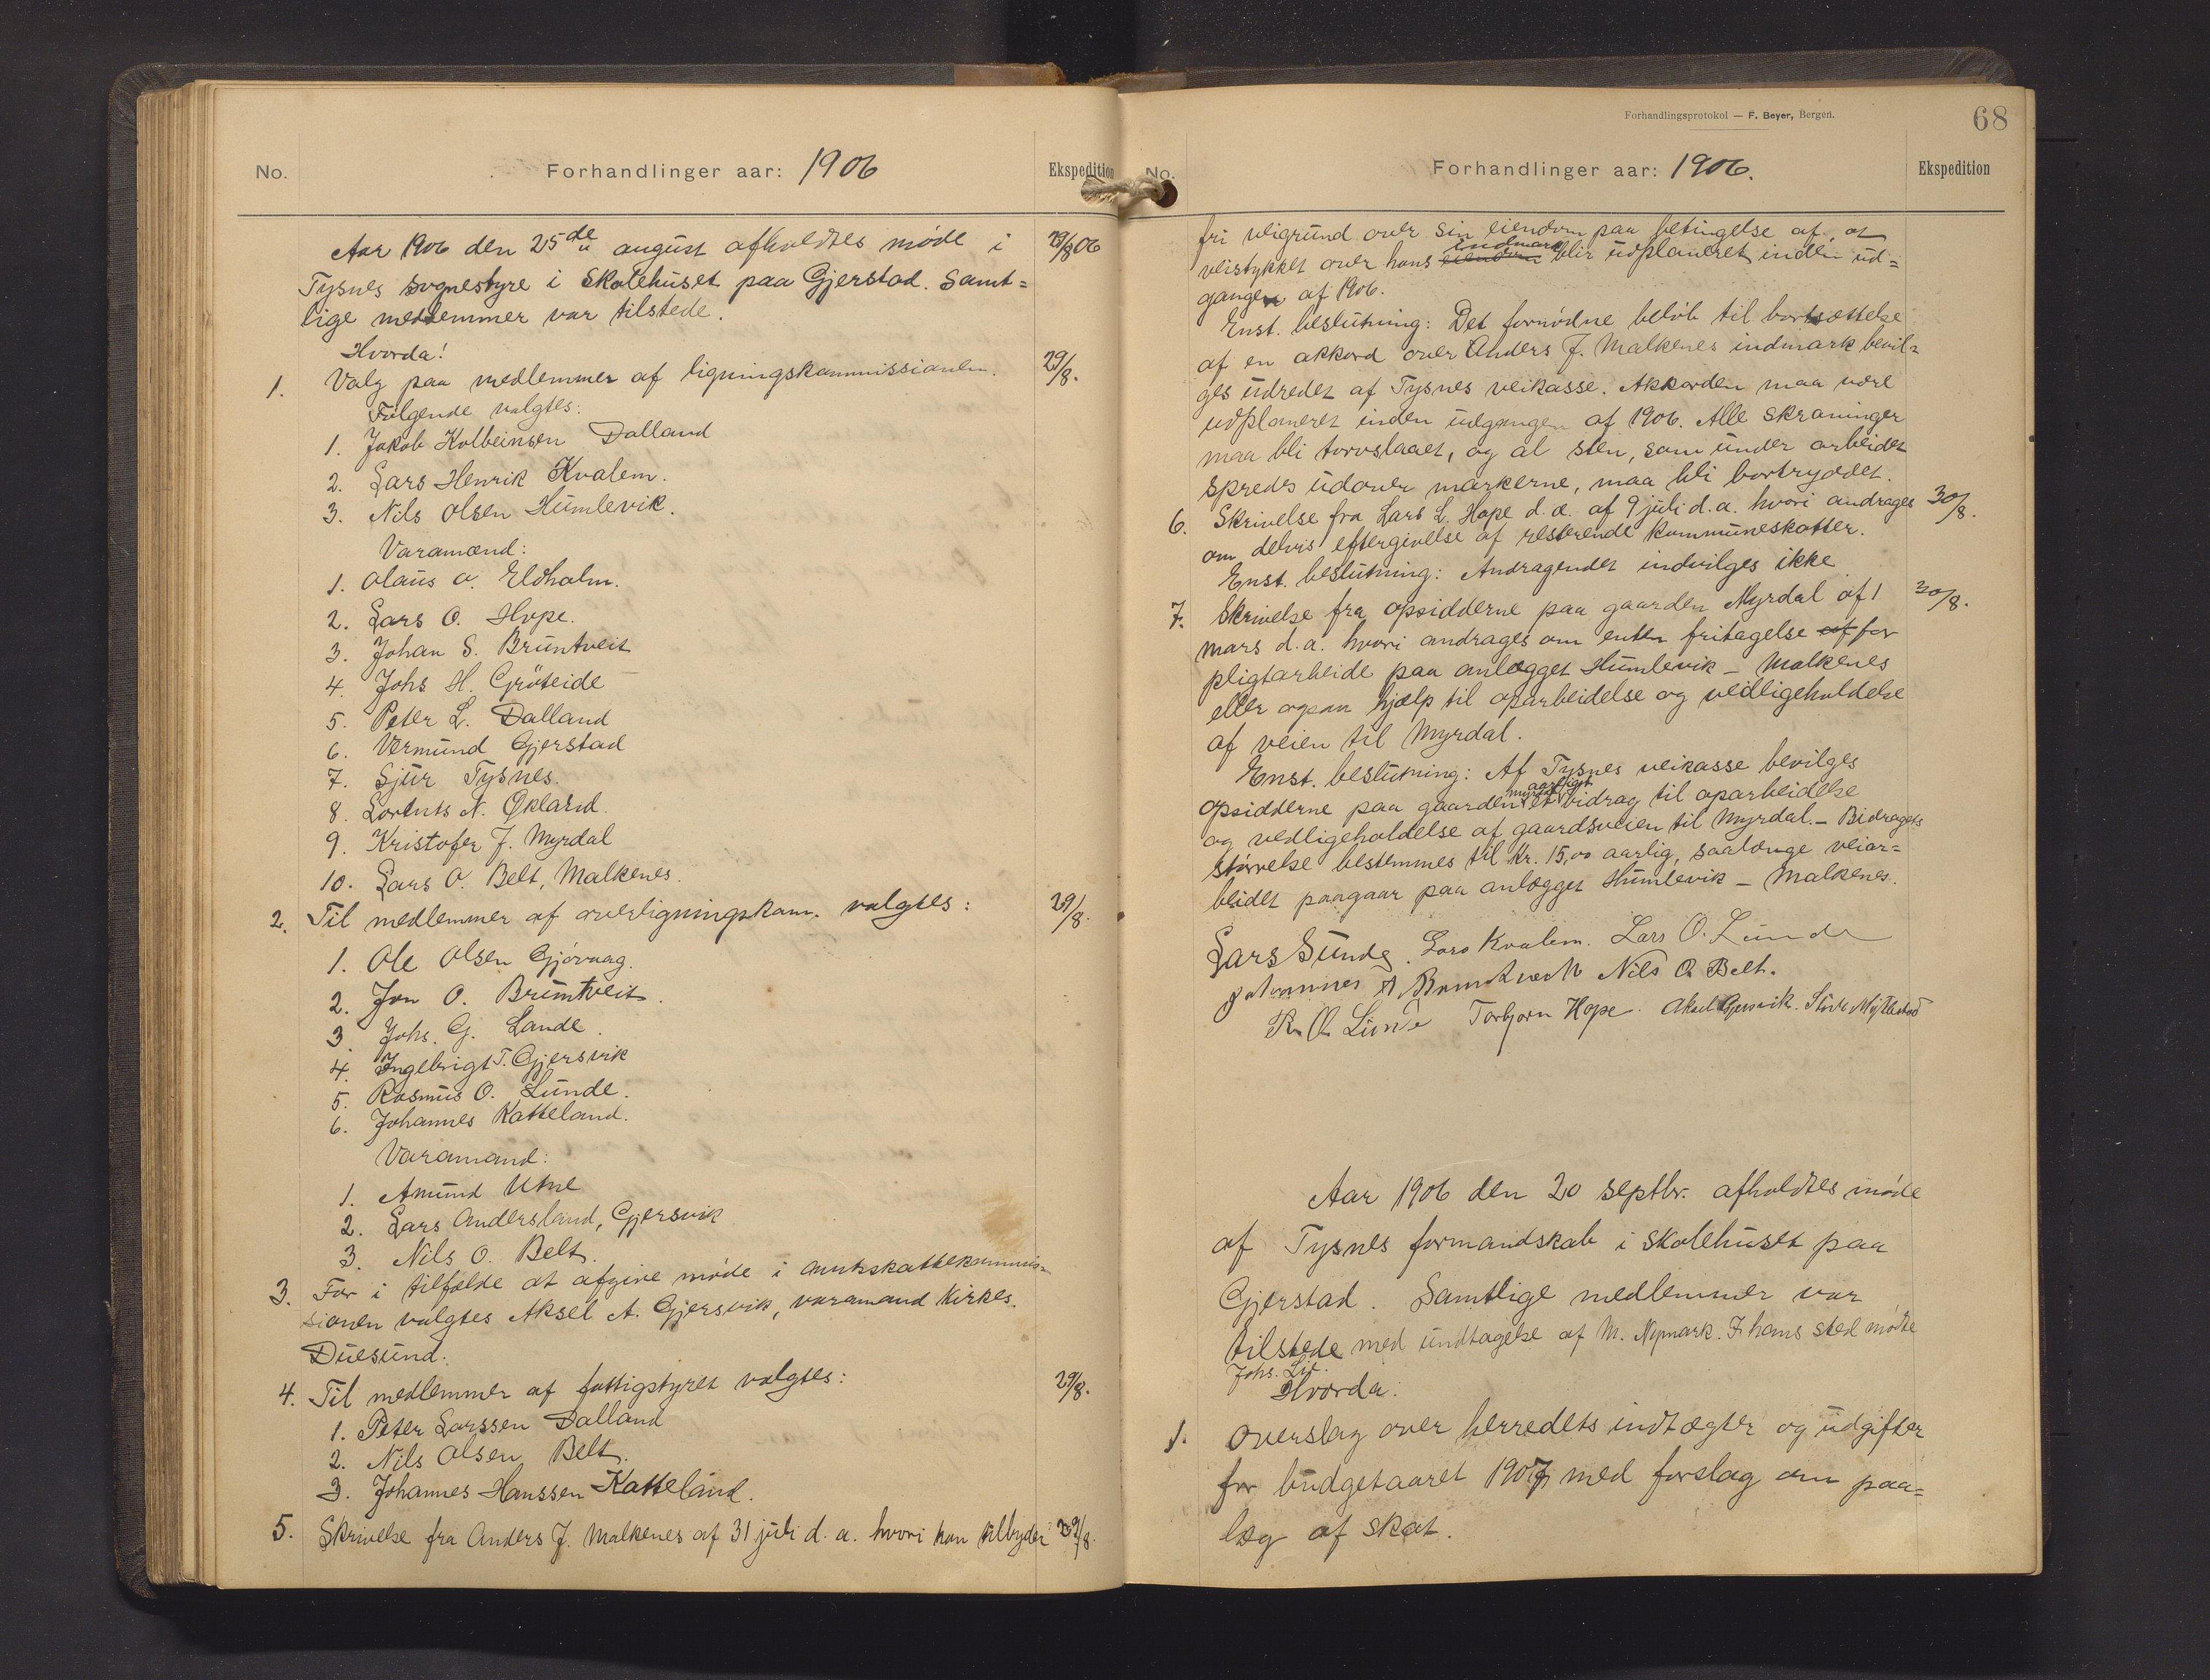 No. Forhandlinger aar: 1906 Ekspedition
Aar 1906 den 25de august afholdtes møde i 29/8 06
Tysnes sognestyre i Skolehuset paa Gjerstad. Samt=
lige medlemmer var tilstede.
Hvorda!
1. Valg paa medlemmer af ligningskommissionen. 29/8.
Følgende valgtes:
1. Jakob Kolbeinsen Dalland
2. Lars Henrik Kvalem.
3. Nils Olsen Humlevik.
Varamænd:
1. Olaus O. Eldholm.
2. Lars O. Hope.
3. Johan S. Bruntveit
4. Johs H. Grøteide
5. Peter L. Dalland
6. Vermund Gjerstad
7. Sjur Tysnes.
8. Lorents N. Økland.
9. Kristofer J. Myrdal
10. Lars O. Belt, Malkenes.
2. Til medlemmer af overligningskom. valgtes: 29/8.
1. Ole Olsen Gjøvaag.
2. Jon O. Bruntveit.
3. Johs. G. Lande.
4. Ingebrigt T. Gjersvik
5. Rasmus O. Lunde.
6. Johannes Katteland.
Varamænd:
1. Amund Utne
2. Lars Andersland, Gjersvik
3. Nils O. Belt.
3. For i tilfælde at afgive møde i amtsskattekommis=
sionen valgtes Aksel A. Gjersvik, varamand Kirkes.
Duesund.
4. Til medlemmer af fattigstyret valgtes: 29/8.
1. Peter Larssen Dalland
2. Nils Olsen Belt.
3. Johannes Hanssen Katteland.
5. Skrivelse fra Anders J. Malkenes af 31 juli d. a. hvori han tilbyder 29/8.
Forhandlingsprotokol — F. Beyer, Bergen.
68
No. Forhandlinger aar: 1906. Ekspedition
fri veigrund over sin eiendom paa betingelse af, at
indmark
veistykket over hans eiendom blir udplaneret inden ud=
gangen af 1906.
Enst. beslutning: Det fornødne beløb til bortsættelse
af en akkord over Anders J. Malkenes indmark bevil=
ges udredet af Tysnes veikasse. Akkorden maa være
udplaneret inden udgangen af 1906. Alle skraninger
maa bli torvslaaet, og al sten, som under arbeidet
spredes udover markerne, maa bli bortryddet.
6. Skrivelse fra Lars L. Hope d. æ. af 9 juli d. a. hvori andrages 30/8.
om delvis eftergivelse af resterende kommuneskatter.
Enst. beslutning: Andragendet indvilges ikke
7. Skrivelse fra opsidderne paa gaarden Myrdal af 1 30/8.
mars d. a. hvori andrages om enten fritagelse af for
pligtarbeide paa anlægget Humlevik – Malkenes
eller ogsaa hjælp til oparbeidelse og vedligeholdelse
af veien til Myrdal.
Enst. beslutning: Af Tysnes veikasse bevilges
Myrdal aarligt
opsidderne paa gaarden et bidrag til oparbeidelse
og vedligeholdelse af gaardsveien til Myrdal. – Bidragets
størrelse bestemmes til kr. 15,00 aarlig, saalænge veiar=
beidet paagaar paa anlægget Humlevik – Malkenes.
Lars Sunde. Lars Kvalem. Lars O. Lunde
Johannes Bruntveit Nils O. Belt.
R. O. Lunde Torbjørn Hope. Aksel Gjersvik.
Aar 1906 den 20 septbr. afholdtes møde
af Tysnes formandskab i skolehuset paa
Gjerstad. Samtlige medlemmer var
tilstede med undtagelse af M. Nymark. I hans sted mødte
Johs. Lie.
Hvorda:
1. Overslag over herredets indtægter og udgifter
for budgetaaret 1907 med forslag om paa=
læg af skat.